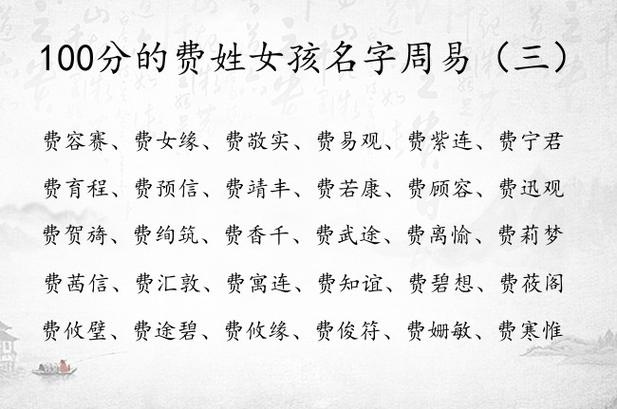 100分的费姓女孩名字周易（三）
费容赛、费女缘、费敬实、费易观、费紫连、费宁君
费育程、费预信、费靖丰、费若康、费顾容、费迅观
费贺旖、费绚筑、费香千、费武途、费离愉、费莉梦
费茜信、费汇敦、费寓连、费知谊、费碧想、费莜阁
费攸璧、费途碧、费攸缘、费俊符、费姗敏、费寒惟